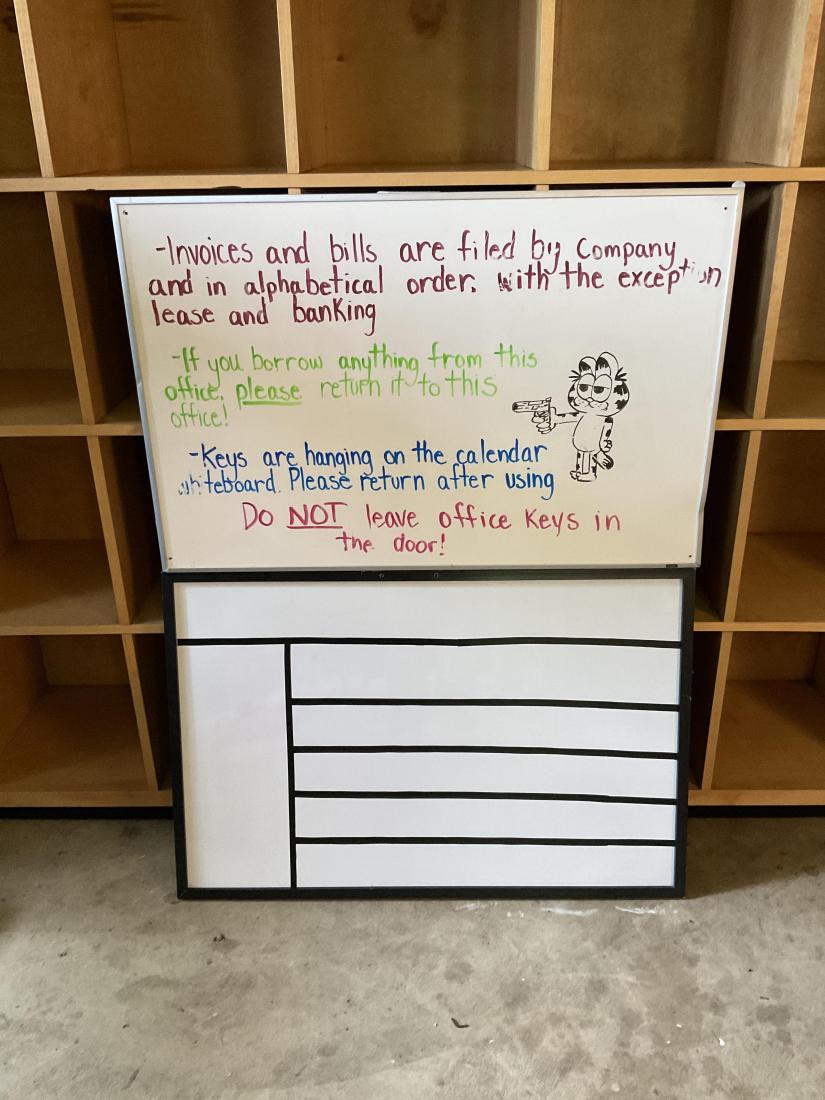 -Invoices and bills are filed by Company
and in alphabetical order. with the exception
lease and banking
-If you borrow anything from this
office, please return it to this
office!
-Keys are hanging on the calendar
whiteboard. Please return after using
Do NOT leave office Keys in
the door!